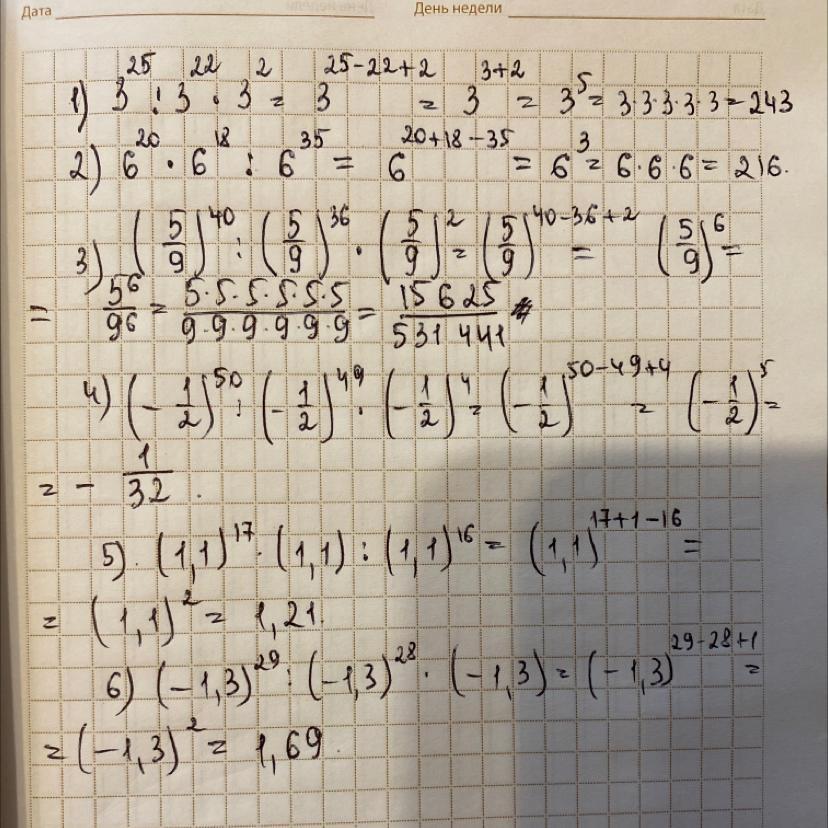 Дата День недели
1) 3^25 : 3^22 · 3^2 = 3^(25-22+2) = 3^(3+2) = 3^5 = 3·3·3·3·3 = 243
2) 6^20 · 6^18 : 6^35 = 6^(20+18-35) = 6^3 = 6·6·6 = 216.
3) (5/9)^40 : (5/9)^36 · (5/9)^2 = (5/9)^(40-36+2) = (5/9)^6 =
= 5^6/9^6 = 5·5·5·5·5·5/9·9·9·9·9·9 = 15625/531441
4) (-1/2)^50 : (-1/2)^49 · (-1/2)^4 = (-1/2)^(50-49+4) = (-1/2)^5 =
= - 1/32.
5). (1,1)^17 · (1,1) : (1,1)^16 = (1,1)^(17+1-16) =
= (1,1)^2 = 1,21.
6) (-1,3)^29 : (-1,3)^28 · (-1,3) = (-1,3)^(29-28+1) =
= (-1,3)^2 = 1,69.